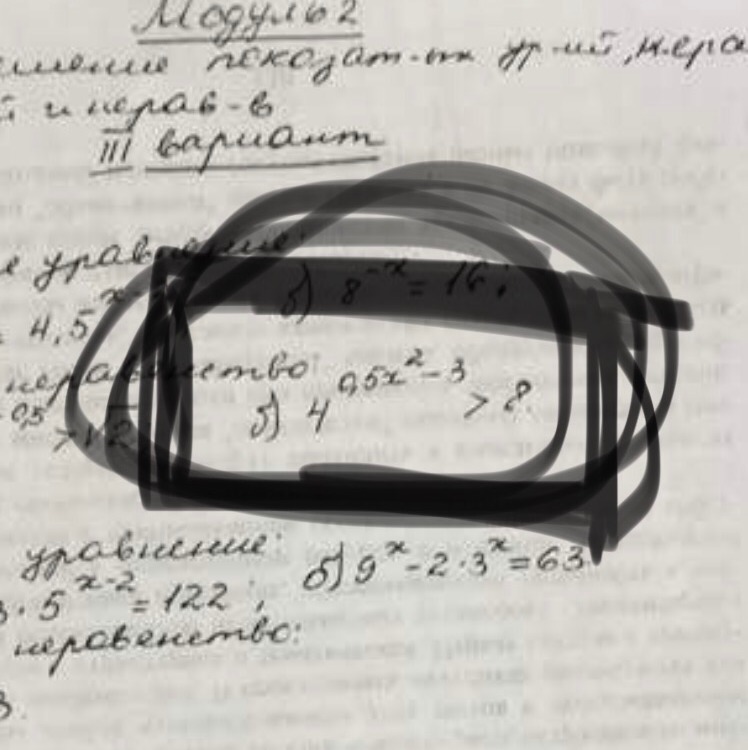 Модуль 2
шение показат-ых ур-ий, нера
й и нерав-в
III вариант
е уравнение:
4,5^x б) 8^-x = 16;
неравенство
0,5 > √2 б) 4^0,5x²-3 > 8.
уравнение:
3·5^x-2 = 122; б) 9^x - 2·3^x = 63
неравенство:
3.